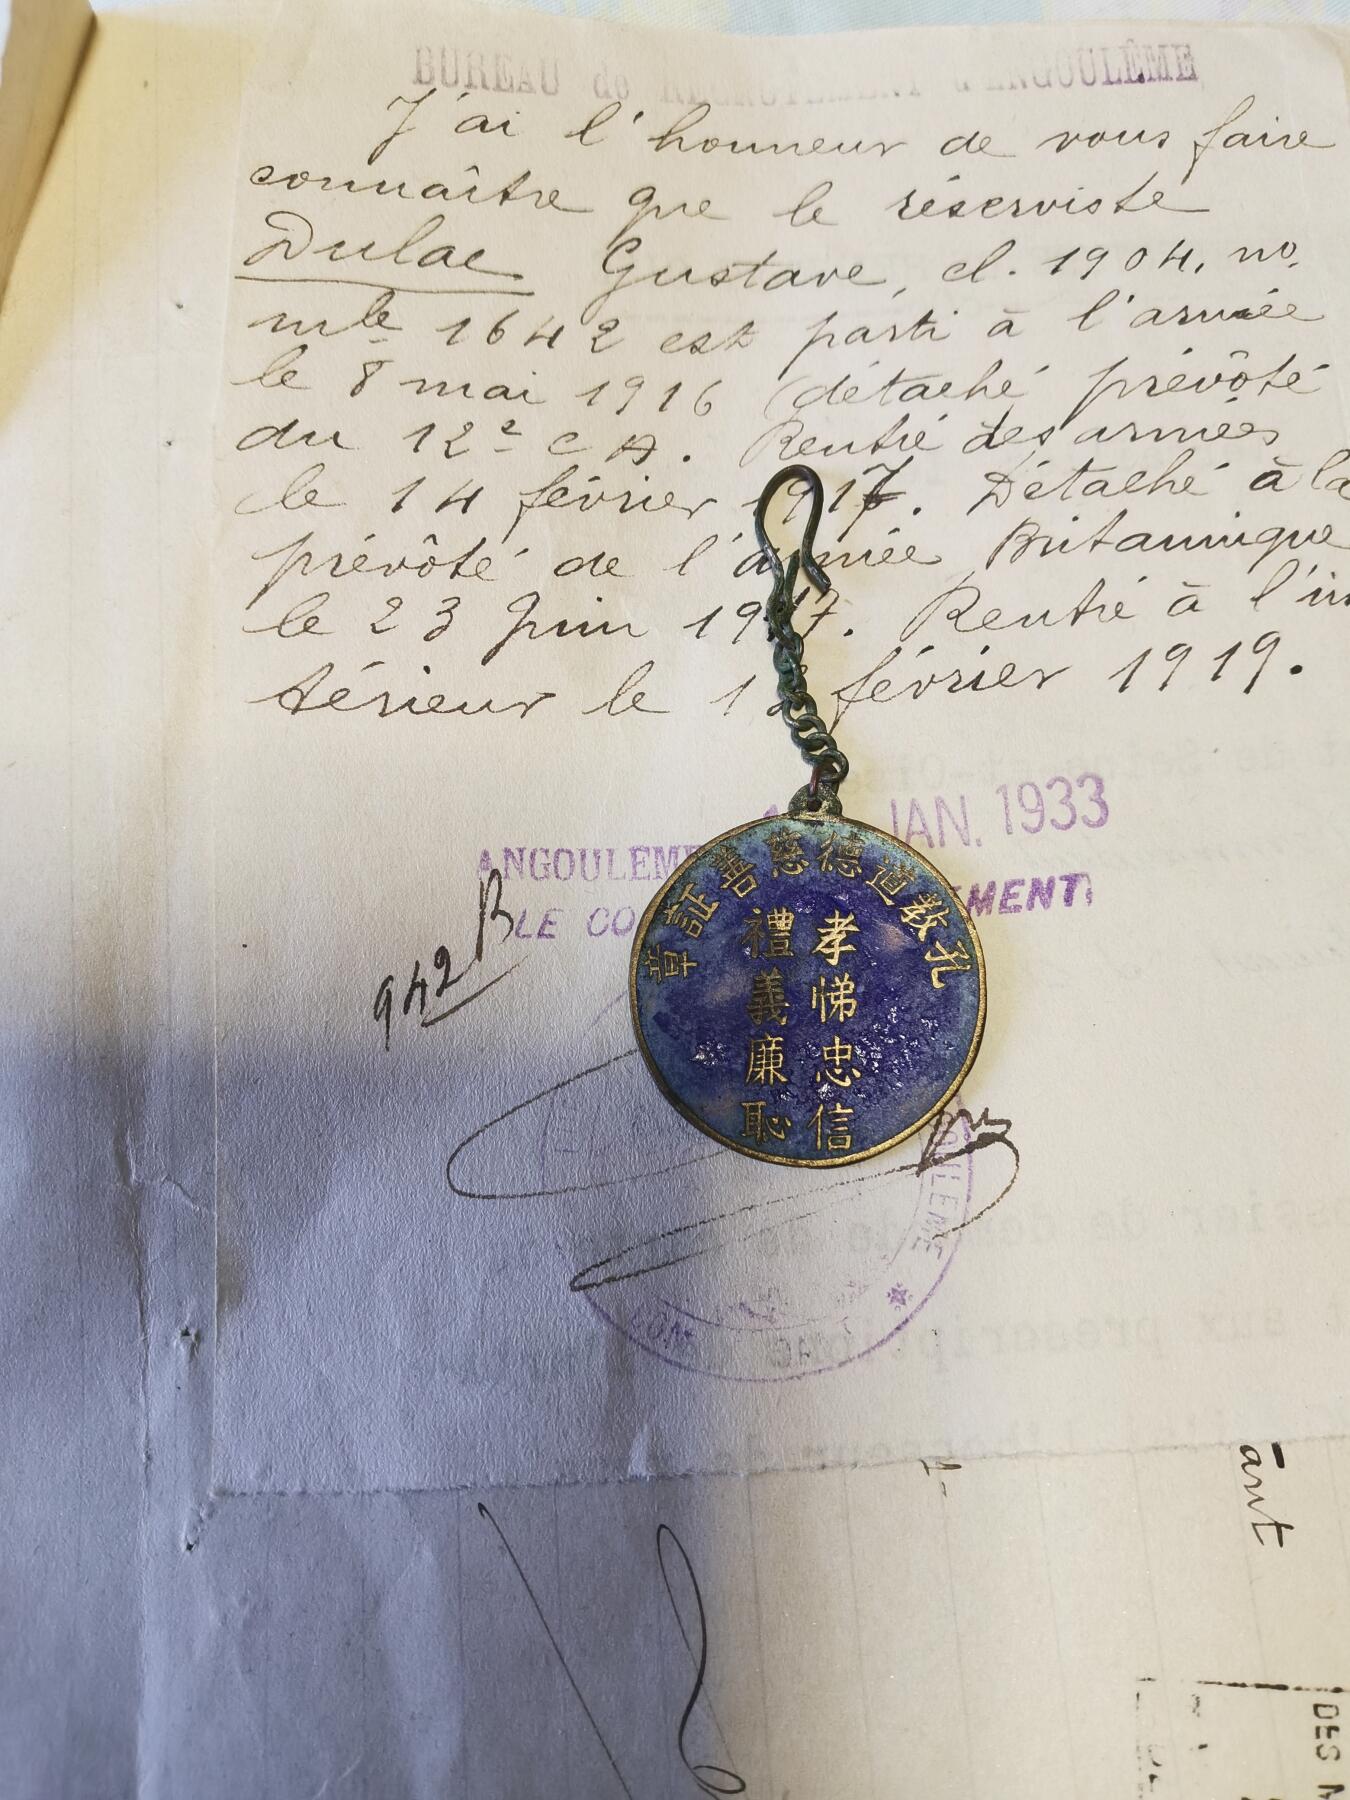 BUREAU de RECRUTEMENT d'ANGOULÊME
J'ai l'honneur de vous faire
connaître que le réserviste
Dulac Gustave, cl. 1904, no
mle 1642 est parti à l'armée
le 8 mai 1916 (détaché prévôté
du 12e CA. Rentré des armées
le 14 février 1917. Détaché à la
prévôté de l'armée Britannique
le 23 Juin 1917. Rentré à l'in
térieur le février 1919.
JAN. 1933
ANGOULEME
LE CO MENT
942 B
孔教道德慈善証章
孝悌忠信
禮義廉恥
OULEME
ant
DES